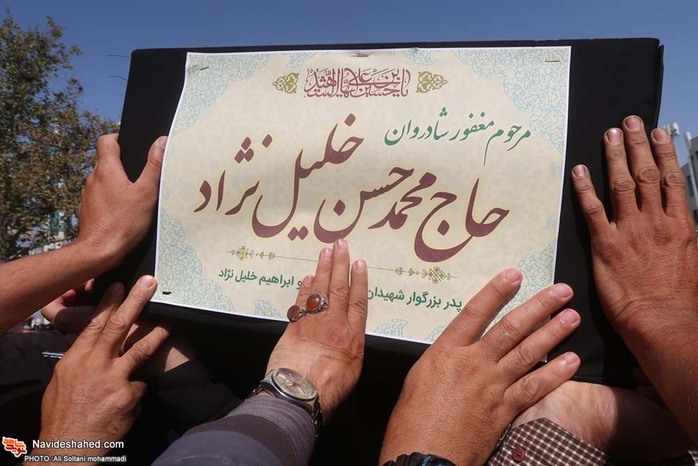 یا حسین بن علی ایها الشهید
مرحوم مغفور شادروان
حاج محمد حسن خلیل نژاد
پدر بزرگوار شهیدان و ابراهیم خلیل نژاد
Navideshahed.com
PHOTO :Ali Soltani mohammadi